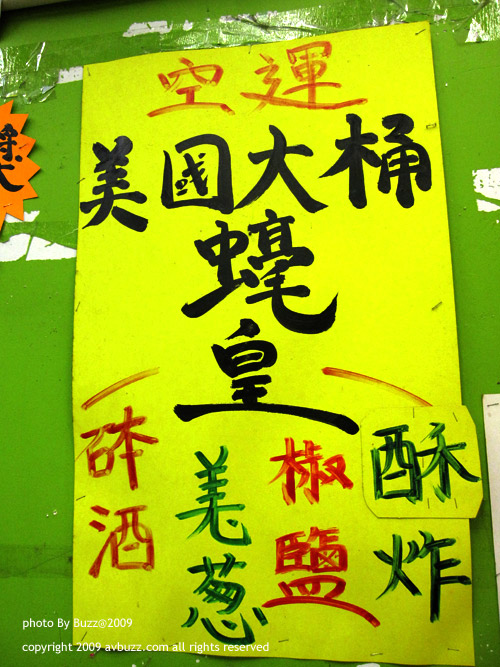 空運
美國大桶
蠔皇
砵酒
羗葱
椒鹽
酥炸
photo By Buzz@2009
copyright 2009 avbuzz.com all rights reserved